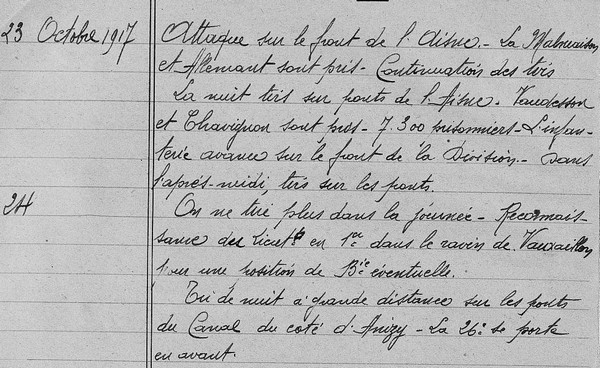 23 Octobre 1917 Attaque sur le front de l'Aisne - La Malmaison
et Allemant sont pris - Continuation des tirs
La nuit tirs sur ponts de l'Aisne - Vaudesson
et Chavignon sont pris - 7.300 prisonniers - L'infan-
terie avance sur le front de la Division - Dans
l'après-midi, tirs sur les ponts.
24 On ne tire plus dans la journée - Reconnais-
sance des lieut en 1er dans le ravin de Vauxaillon
pour une position de Bie éventuelle.
Tir de nuit à grande distance sur les ponts
du Canal du coté d'Anizy - La 26e se porte
en avant.